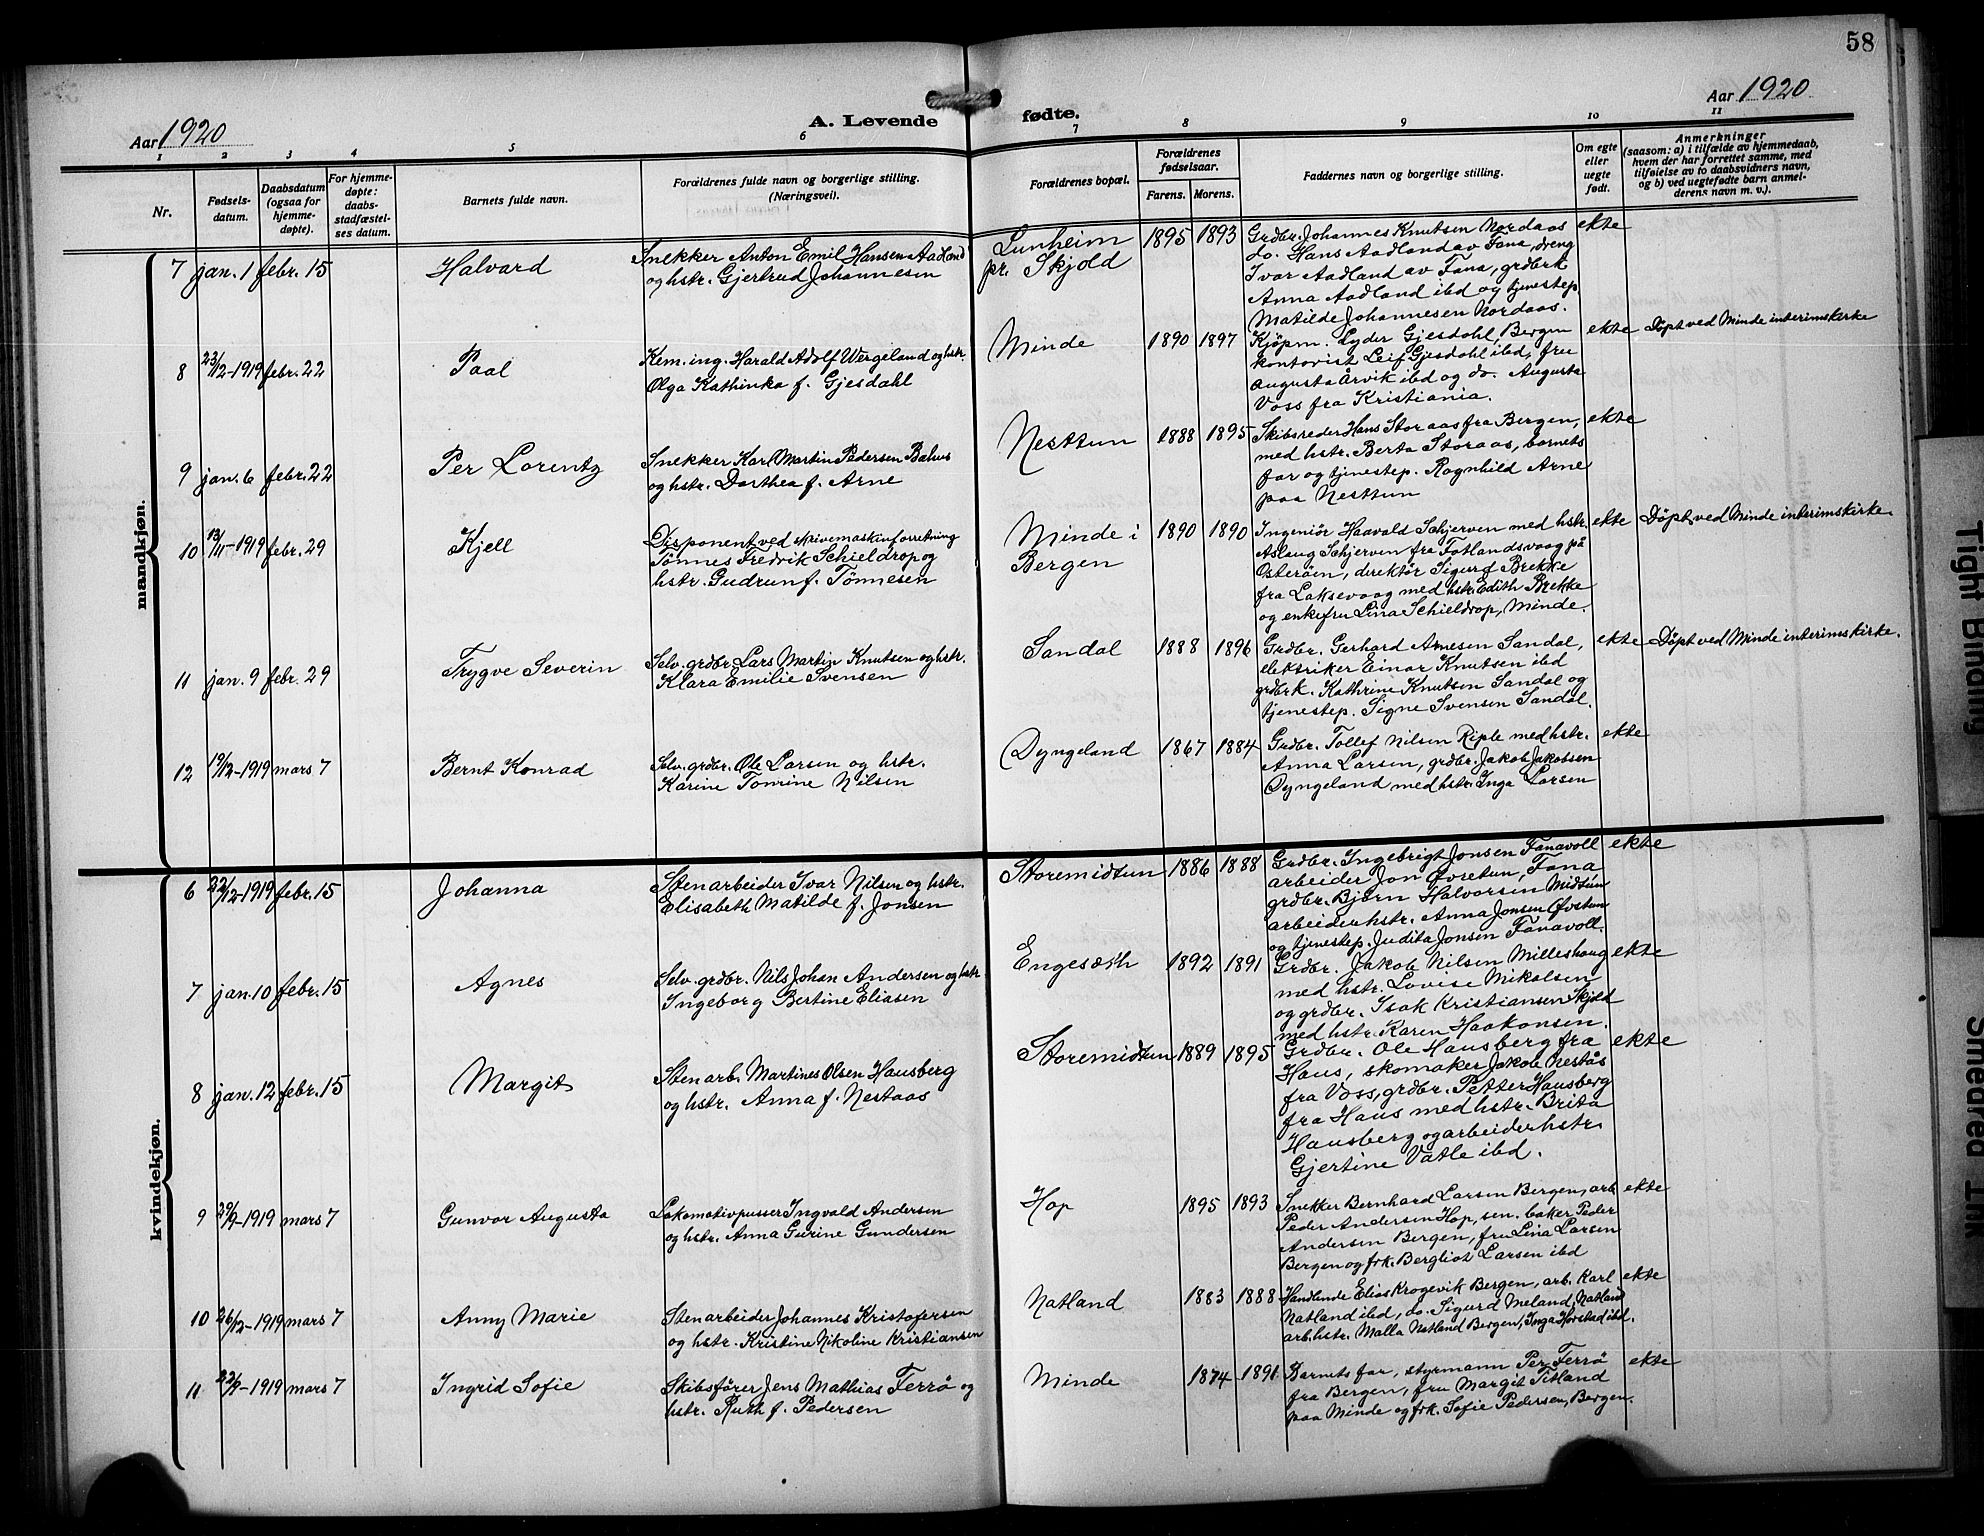 58
Aar 1920
A. Levende
fødte.
Aar 1920
1 2 3 4 5 6 7 8 9 10 11
Nr.
Fødsels-
datum.
Daabsdatum
(ogsaa for
hjemme-
døpte).
For hjemme-
døpte:
daabs-
stadfæstel-
ses datum.
Barnets fulde navn.
Forældrenes fulde navn og borgerlige stilling.
(Næringsvei).
Forældrenes bopæl.
Forældrenes
fødselsaar.
Farens. Morens.
Faddernes navn og borgerlige stilling.
Om egte
eller
uegte
født.
Anmerkninger
(saasom: a) i tilfælde av hjemmedaab,
hvem der har forrettet samme, med
tilføielse av to daabsvidners navn,
og b) ved uegtefødte barn anmel-
derens navn m. v.).
mandkjøn.
7 jan. 1 febr. 15 Halvard
Snekker Anton Emil Hansen Aadland
og hstr. Gjertrud Johannesen
Lunheim
pr. Skjold
1895 1893
Grdbr. Johannes Knutsen Nordaas
do. Hans Aadland av Fana, dreng
Ivar Aadland av Fana, grdbrk
Anna Aadland ibd og tjenestep.
Matilde Johannesen Nordaas.
ekte
8 23/12-1919 febr. 22 Paal
Kem. ing. Harald Adolf Wergeland og hstr.
Olga Kathinka f. Gjesdahl
Minde
1890 1897
Kjøpm. Lyder Gjesdahl, Bergen
kontorist Leif Gjesdahl ibd, fru
Augusta Årvik ibd og do. Augusta
Voss fra Kristiania.
ekte
Døpt ved Minde interimskirke
9 jan. 6 febr. 22 Per Lorentz
Snekker Karl Martin Pedersen Bahus
og hstr. Dorthea f. Arne
Nesttun
1888 1895
Skibsreder Hans Storaas fra Bergen,
med hstr. Berta Storaas, barnets
far og tjenestep. Ragnhild Arne
paa Nesttun
ekte
10 13/11-1919 febr. 29 Kjell
Disponent ved skrivemaskinforretning
Tønnes Fredrik Schieldrop og
hstr. Gudrun f. Tønnesen
Minde i
Bergen
1890 1890
Ingeniør Haavald Schjerven med hstr.
Aslaug Schjerven fra Fotlandsvaag på
Osterøen, direktør Sigurd Brekke
fra Laksevaag med hstr. Edith Brekke
og enkefru Lina Schieldrop, Minde.
ekte
Døpt ved Minde interimskirke.
11 jan. 9 febr. 29 Trygve Severin
Selv. grdbr. Lars Martin Knutsen og hstr.
Klara Emilie Svensen
Sandal
1888 1896
Grdbr. Gerhard Arnesen Sandal,
elektriker Einar Knutsen ibd
grdbrk. Kathrine Knutsen Sandal og
tjenestep. Signe Svensen Sandal.
ekte
Døpt ved Minde interimskirke.
12 19/12-1919 mars 7 Bernt Konrad
Selv. grdbr. Ole Larsen og hstr.
Karine Tomine Nilsen
Dyngeland
1867 1884
Grdbr. Tollef Nilsen Riple med hstr.
Anna Larsen, grdbr. Jakob Jakobsen
Dyngeland med hstr. Inga Larsen
ekte
kvindekjøn.
6 22/12-1919 febr. 15 Johanna
Stenarbeider Ivar Nilsen og hstr.
Elisabeth Matilde f. Jonsen
Storemidtun
1886 1888
Grdbr. Ingebrigt Jonsen Fanavoll
arbeider Jon Øvretun, Fana
grdbr. Bjørn Halvorsen Midtun
arbeiderhstr. Anna Jonsen Øvstun
og tjenestep. Judita Jonsen Fanavoll.
ekte
7 jan. 10 febr. 15 Agnes
Selv. grdbr. Nils Johan Andersen og hstr
Ingeborg Bertine Eliasen
Engesæth
1892 1891
Grdbr. Jakob Nilsen Milleshaug
med hstr. Lovise Mikalsen
og grdbr. Isak Kristiansen Skjold
med hstr. Karen Haakonsen.
ekte
8 jan. 12 febr. 15 Margit
Stenarb. Martines Olsen Hausberg
og hstr. Anna f. Nestaas
Storemidtun
1889 1895
Grdbr. Ole Hausberg fra
Haus, skomaker Jakob Nestås
fra Voss, grdbr. Petter Hausberg
fra Haus med hstr. Brita
Hausberg og arbeiderhstr.
Gjertine Vatle ibd.
ekte
9 29/9-1919 mars 7 Gunvor Augusta
Lokomotivpusser Ingvald Andersen
og hstr. Anna Gurine Gundersen
Hop
1895 1893
Snekker Bernhard Larsen Bergen, arb.
Peder Andersen Hop, sen. baker Peder
Andersen Bergen, fru Lina Larsen
Bergen og frk. Bergliot Larsen ibd
ekte
10 26/12-1919 mars 7 Anny Marie
Stenarbeider Johannes Kristofersen
og hstr. Kristine Nikoline Kristiansen
Natland
1883 1888
Handlende Elias Krogevik Bergen, arb. Karl
Natland ibd, do. Sigurd Meland, Natland
arb.hstr. Malla Natland Bergen, Inga Horstad ibd.
ekte
11 22/9-1919 mars 7 Ingrid Sofie
Skibsfører Jens Mathias Ferrø og
hstr. Ruth f. Pedersen
Minde
1874 1891
Barnets far, styrmann Per Ferrø
fra Bergen, fru Margit Titland
paa Minde og frk. Sofie Pedersen, Bergen.
ekte
Tight Binding
Smedred Ink